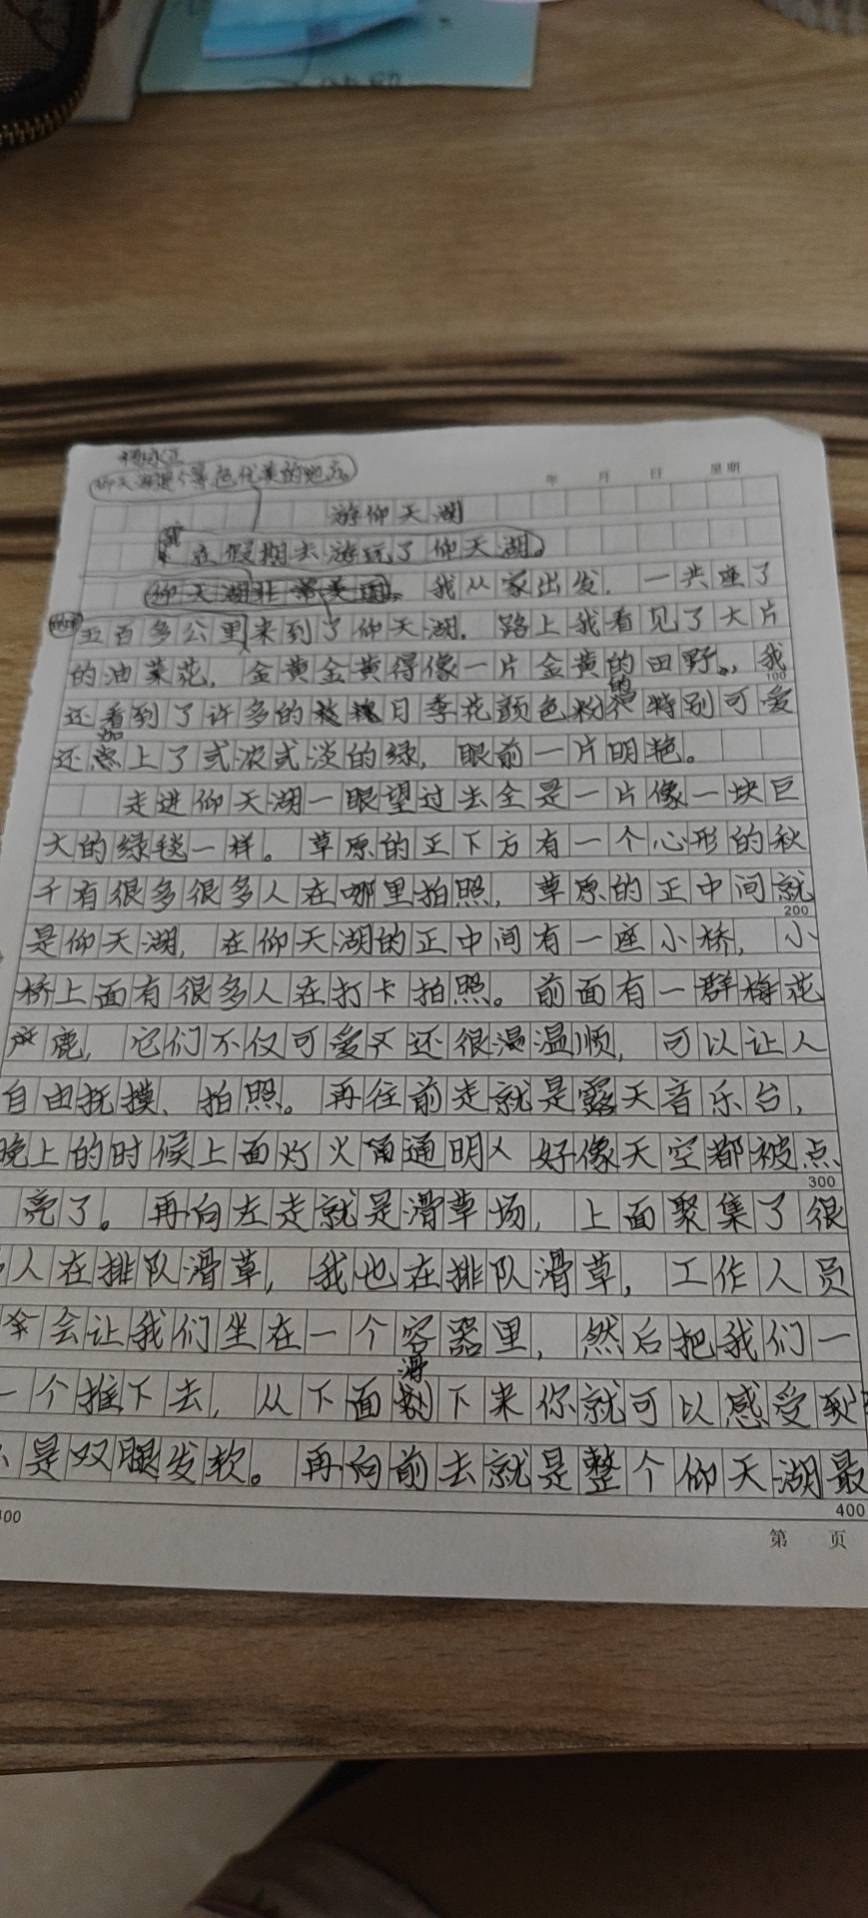 仰天湖是个景色优美的地方。
年 月 日 星期
游仰天湖
我在假期去游玩了仰天湖。
仰天湖非常美丽。我从家出发,一共座了
五百多公里来到了仰天湖。路上我看见了大片
的油菜花,金黄金黄得像一片金黄的田野。,我
100
还看到了许多的月季花颜色粉粉的特别可爱
加
还点上了或浓或淡的绿,眼前一片明艳。
走进仰天湖一眼望过去全是一片像一块巨
大的绿毯一样。草原的正下方有一个心形的秋
千有很多很多人在哪里拍照,草原的正中间就
200
是仰天湖,在仰天湖的正中间有一座小桥,小
桥上面有很多人在打卡拍照。前面有一群梅花
鹿,它们不仅可爱还很温顺,可以让人
自由抚摸、拍照。再往前走就是露天音乐台,
晚上的时候上面灯火通明,好像天空都被点
300
亮了。再向左走就是滑草场,上面聚集了很
人在排队滑草,我也在排队滑草,工作人员
会让我们坐在一个容器里,然后把我们一
滑
一个推下去,从下面下来你就可以感受到
是双腿发软。再向前去就是整个仰天湖最
400
第 页